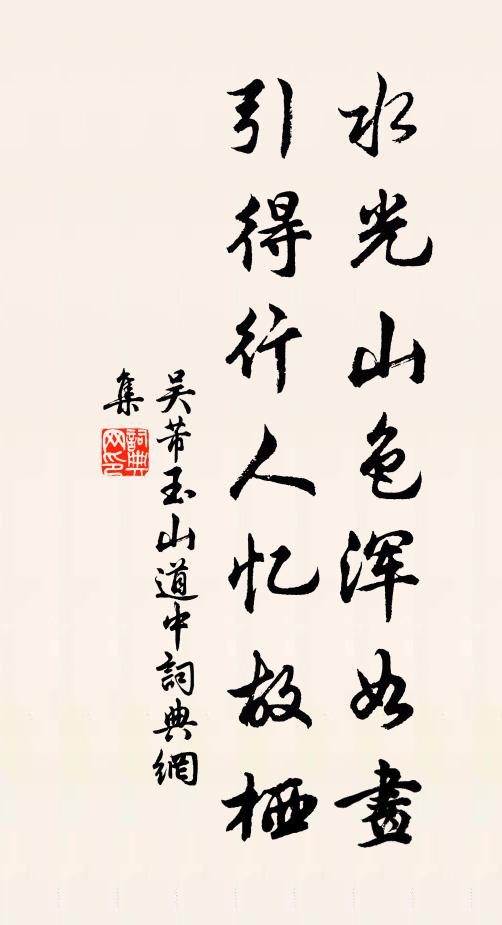 水光山色浑如畫
引得行人忆故栖
吴芾玉山道中詞典網
集
詞典
网印